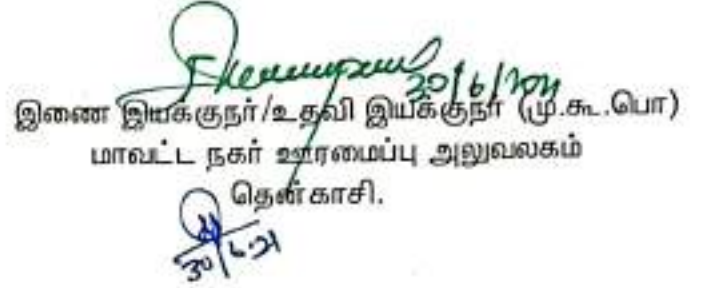 30/6/2021
இணை இயக்குநர்/உதவி இயக்குநர் (மு.கூ.பொ)
மாவட்ட நகர் ஊரமைப்பு அலுவலகம்
தென்காசி.
30/6.21